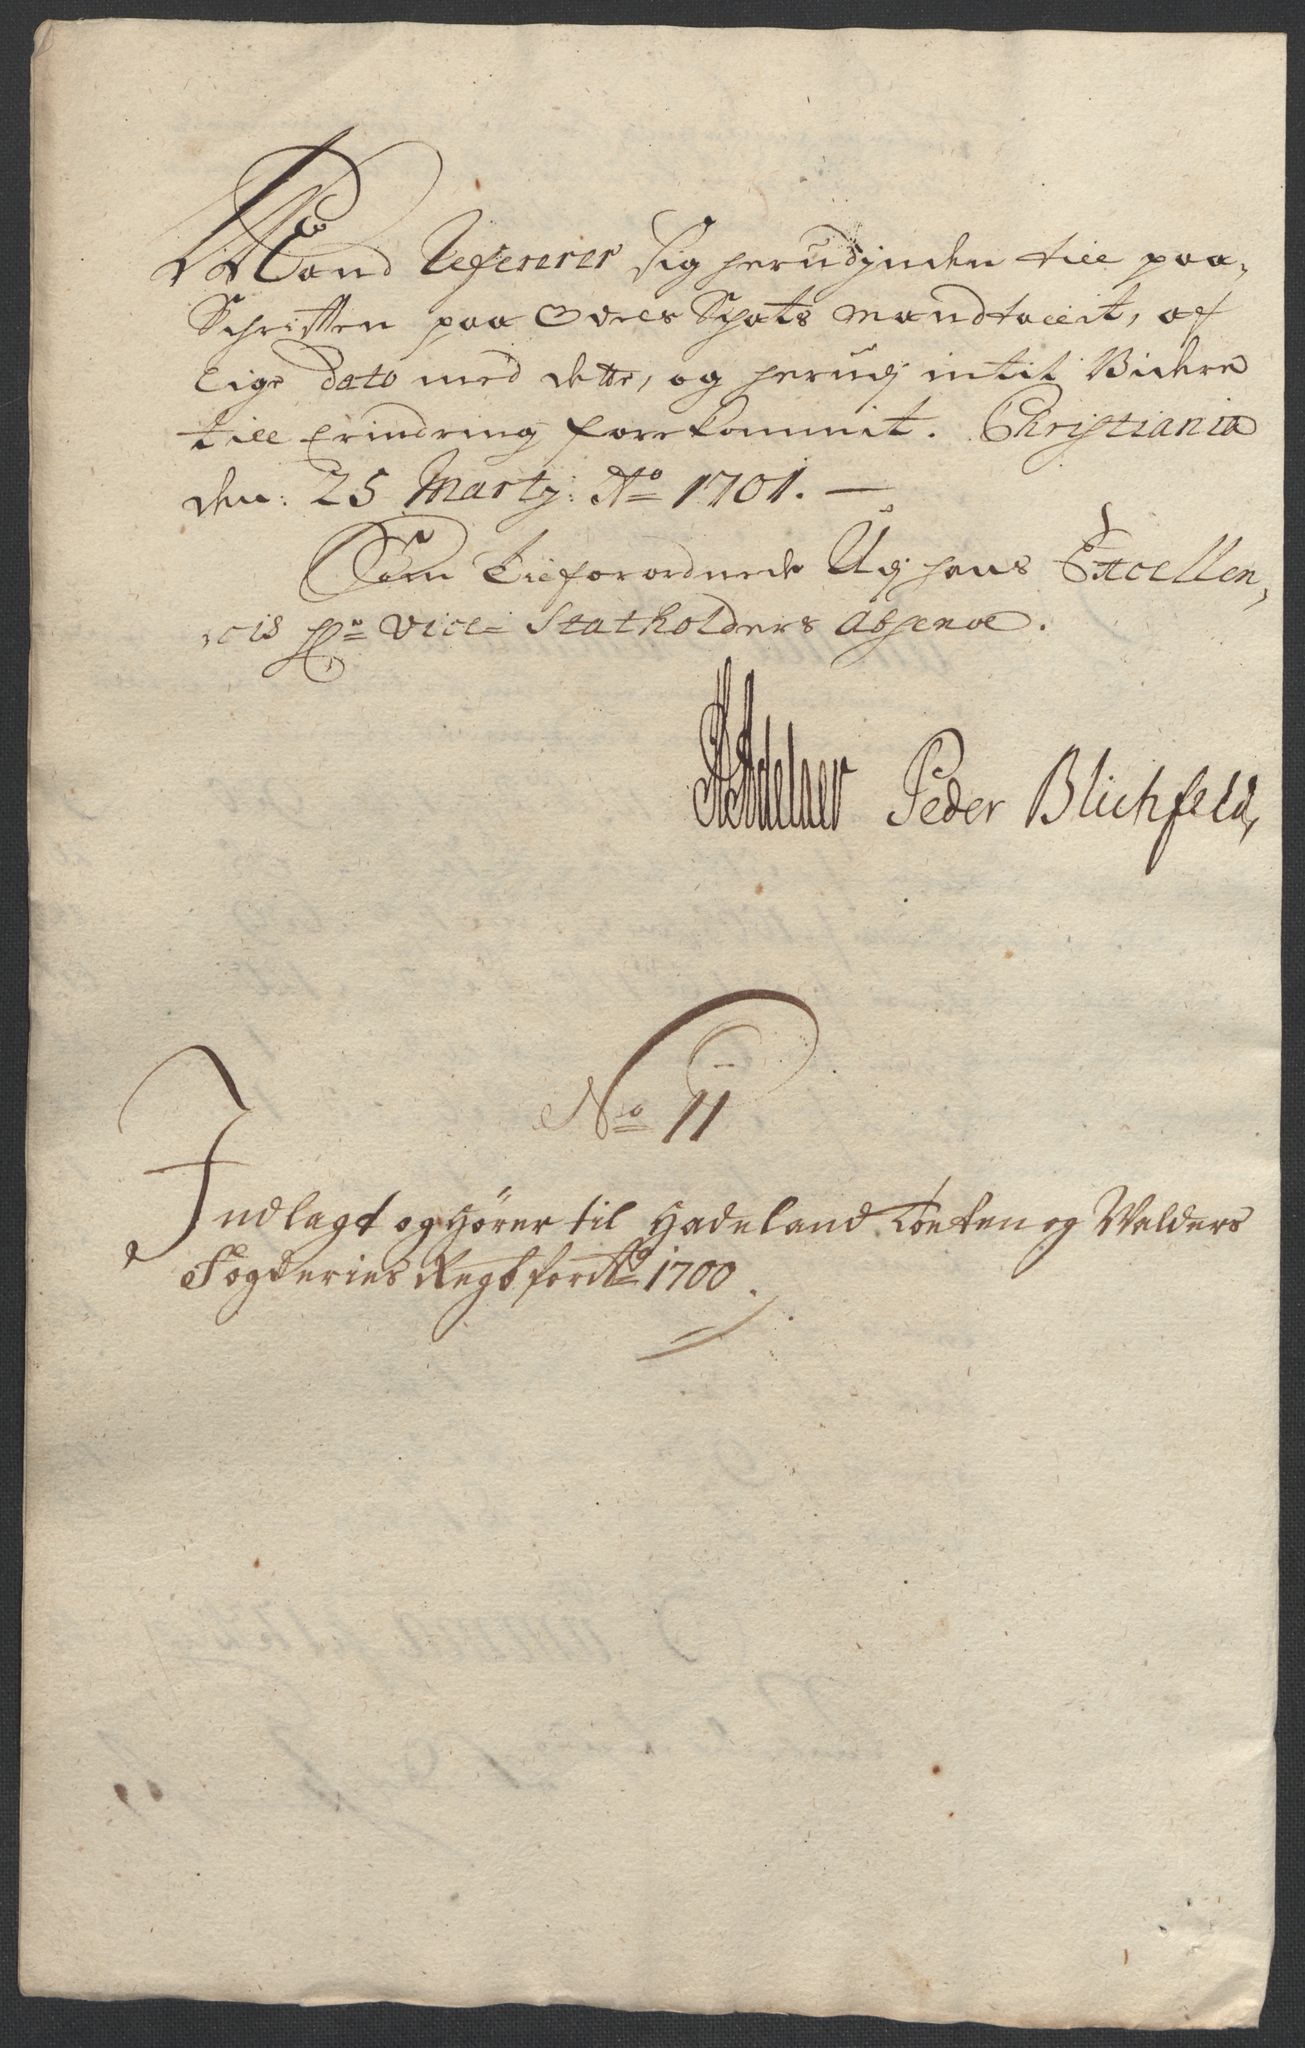 Mand Refererer sig herudjnden till paa-
Schrifften paa Odels Schats mandtallit, af
lige dato med dette, og herudj intil Videre
till Erindring forekommit. Christiania
den: 25 Marty: Ao 1701. —
Som Tilforordnede Udj hans Excellen-
cis Hr Vice-Statholders Absence.
Adelaer Peder Blichfeld,
No 11
Indlagt og hörer til Hadeland Toten og Walders
Fogderies Regsk for Ao 1700.